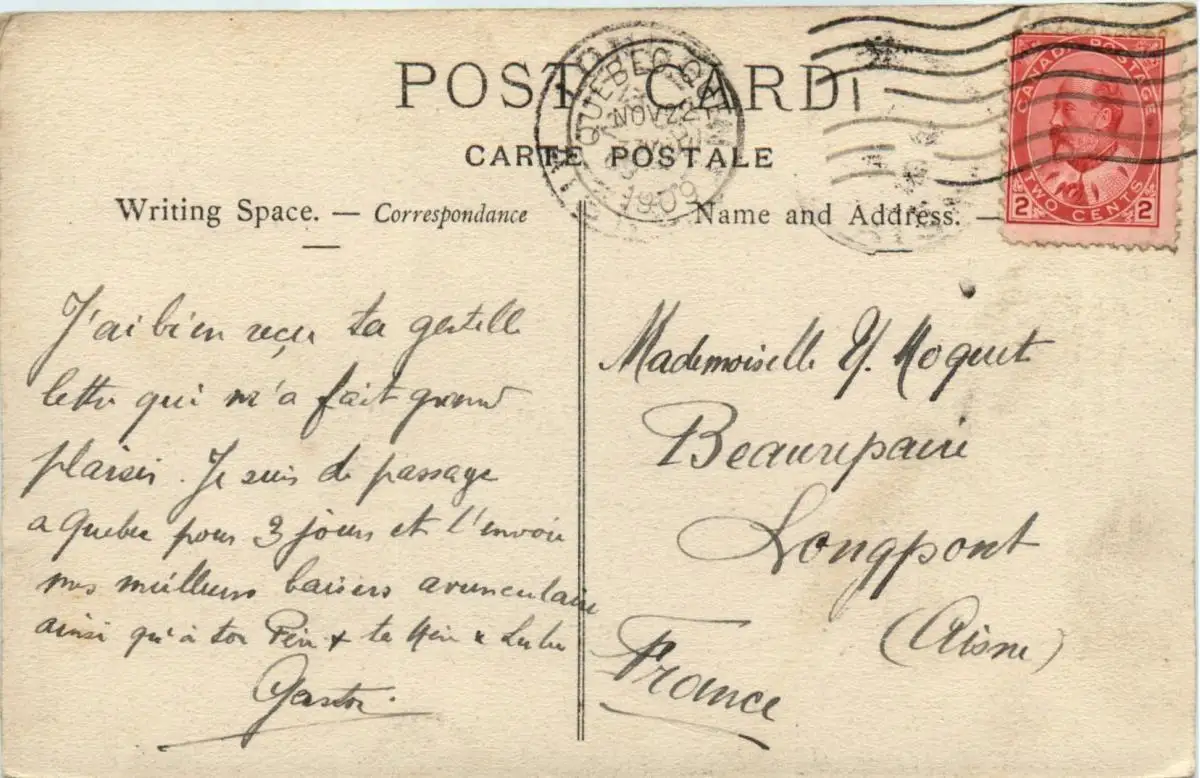 POST CARD
CARTE POSTALE
Writing Space. — Correspondance
Name and Address. —
QUEBEC, QUE.
NOV 22
1909
CANADA POSTAGE
2 TWO CENTS 2
J'ai bien reçu ta gentille
lettre qui m'a fait grand
plaisir. Je suis de passage
a Quebec pour 3 jours et t'envoie
mes meilleurs baisers avunculaires
ainsi qu'à ton Père & ta Mère & Lulu
Gaston.
Mademoiselle Y. Moquet
Beaurepaire
Longpont
(Aisne)
France